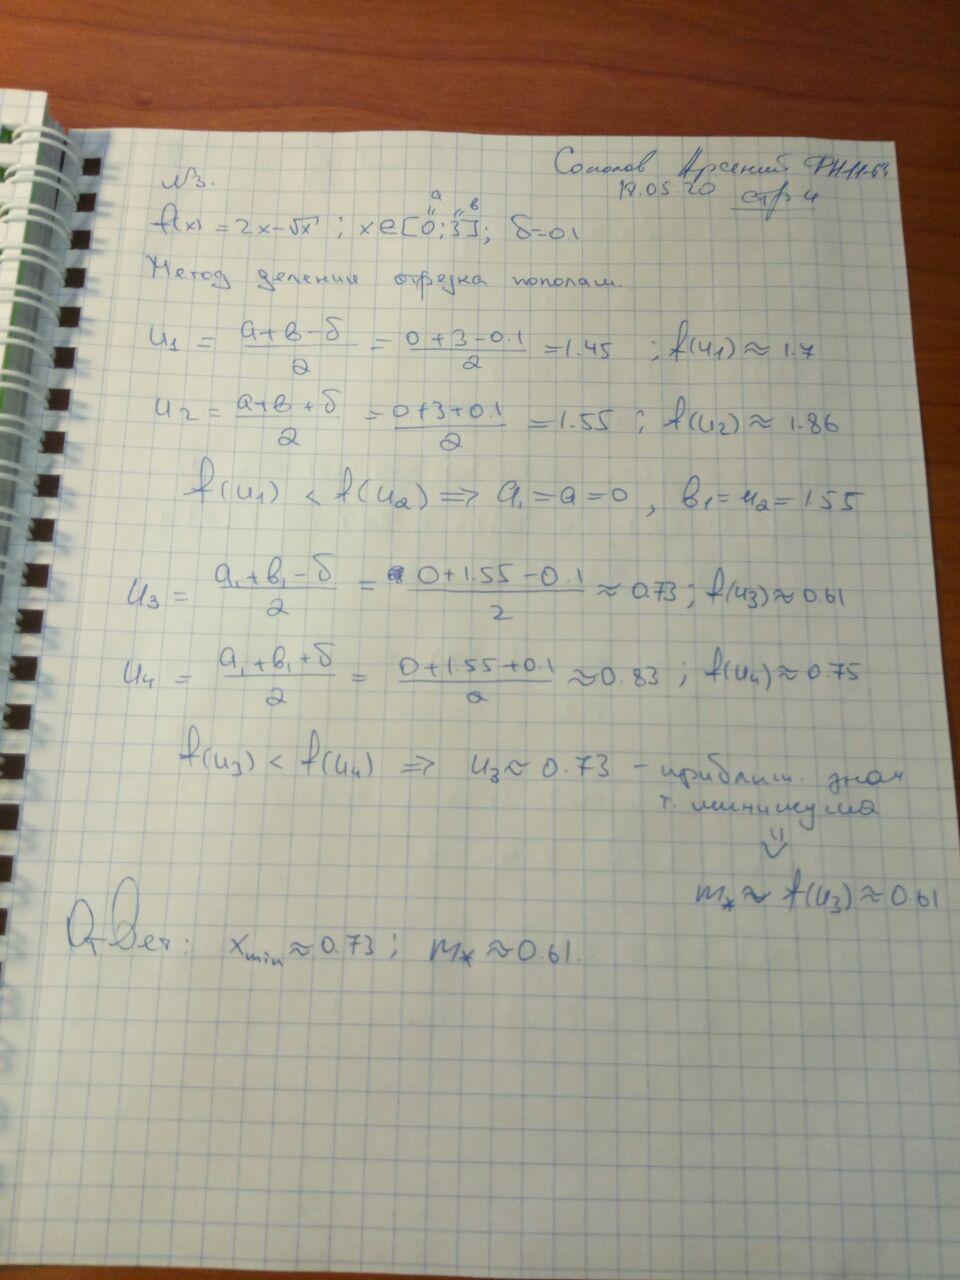 Соколов Арсений ФН11-63
№3. 18.05.20 стр 4
f(x) = 2x-√x ; x∈[0;3]; δ=0.1
a в
Метод деления отрезка пополам.
u₁ = (a+в-δ)/2 = (0+3-0.1)/2 = 1.45 ; f(u₁) ≈ 1.7
u₂ = (a+в+δ)/2 = (0+3+0.1)/2 = 1.55 ; f(u₂) ≈ 1.86
f(u₁) < f(u₂) => a₁ = a = 0 , в₁ = u₂ = 1.55
u₃ = (a₁+в₁-δ)/2 = (0+1.55-0.1)/2 ≈ 0.73 ; f(u₃) ≈ 0.61
u₄ = (a₁+в₁+δ)/2 = (0+1.55+0.1)/2 ≈ 0.83 ; f(u₄) ≈ 0.75
f(u₃) < f(u₄) => u₃ ≈ 0.73 - приближ. знач.
т. минимума
⇓
m* ≈ f(u₃) ≈ 0.61
Ответ: xmin ≈ 0.73 ; m* ≈ 0.61.